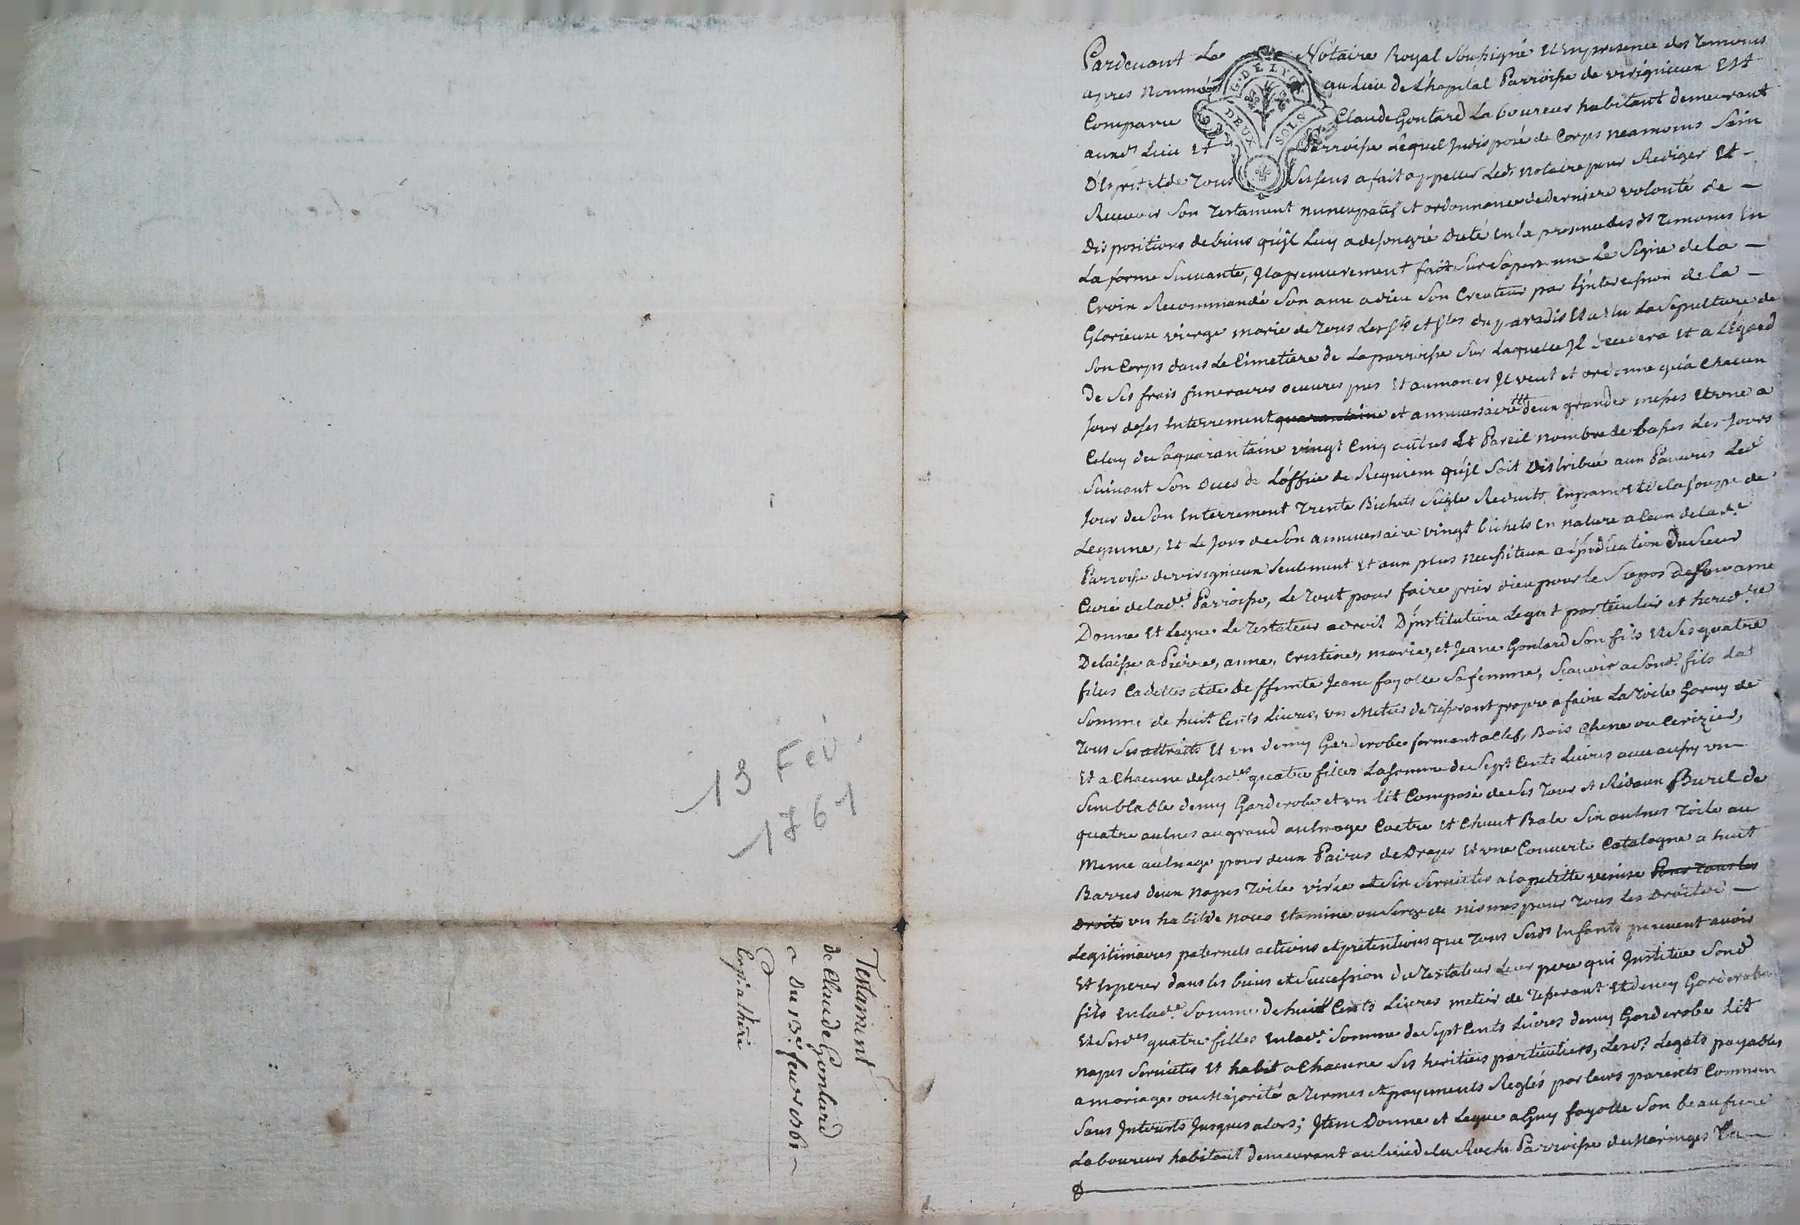 Pardevant Le Notaire Royal soussigné et en presence des temoins
apres nommés au Lieu de L'hopital Parroisse de virignieux Est
Comparu Claude Gontard Laboureur habitant demeurant
auxd. Lieu et Parroisse Lequel Indisposé de Corps neamoins Sain
D'Esprit et de Tous ses sens a fait appeller Led. notaire pour Rediger Et
Recevoir Son Testament nuncupatif et ordonnance de derniere volonté de
Dispositions de biens qu'jl Luy a de son gré dicté en la presence desd. temoins En
La forme Suivante, Jl a premierement fait Sur sa personne Le Signe de la
Croix Recommandé Son ame a dieu Son Createur par L'jntercession de la
Glorieuse vierge marie de Tous Les Sts et Stes du paradis Et a Elu La Sepulture de
Son Corps dans Le Cimetiere de La parroisse Sur Laquelle Jl decedera Et a L'Egard
De Ses frais funeraires oeuvres pies Et aumones Jl veut et ordonne qu'a Chacun
Jour de ses Enterrement quarantaine et anniversaire deux grandes messes Et une a
Celuy de Saquarantaine vingt Cinq autres Et Pareil nombre de basses Les Jours
Suivant Son deces de L'office de Requiem qu'jl Soit Distribué aux Pauvres Led.
Jour de Son Enterrement Trente Bichets Seigle Reduits En pain Et de la soupe de
Legume, Et Le Jour de Son anniversaire vingt bichets En nature a Ceux de lad.e
Parroisse de virignieux Seulement Et aux plus necessiteux a L'jndication du Sieur
Curé de lad.e Parroisse, Le Tout pour faire prier dieu pour le Repos de Son ame
Donne Et Legue Le Testateur a droit D'jnstitution Legat particulier et hered.re
Delaisse a Pierre, anne, Cristine, marie, et Jeane Gontard Son fils Et Ses quatre
filles Cadettes et de Deffunte Jeane fayolle Sa femme, Scavoir a Sond. fils La
Somme de huit Cents Livres, un Metier de Tisserant propre a faire La Toile Garny de
Tous Ses attraits Et un demy Garderobe fermant a Clef, Bois Chene ou Cerizier,
Et a Chacune de sesd.es quatre filles La Somme de Sept Cents Livres avec aussy un
Semblable demy Garderobe et un lit Composé de Ses Tour et Rideaux Burel de
quatre aulnes au grand aulnage Coetre Et Chevet Bale Six aulnes Toile au
Meme aulnage pour deux Paires de Draps Et une Couverte Catalogne a huit
Barres deux napes Toile virée et Six Serviettes a la petitte venise Pour Tous les
Droits un habit de noces Etamine ou Serge de nismes pour Tous Les Droits
Legitimaires paternels actions et pretentions que Tous Sesd. Enfants peuvent avoir
Et Esperer dans les biens et Succession du Testateur Leur pere qui Jnstitue Sond.
fils En lad.e Somme de huit Cents Livres metier de Tisserant Et demy Garderobe
Et Sesd.es quatre filles En lad.e Somme de Sept Cents Livres demy Garderobe Lit
napes Serviettes Et habit a Chacune Ses heritiers particuliers, Lesd.s Legats payables
a mariage ou Majorité a Termes et payements Reglés par leurs parents Commun
Sans Jnterets Jusques alors; Jtem Donne et Legue a Guy fayolle Son beaufrere
Laboureur habitant demeurant au lieu de la Roche Parroisse de Maringes La
G. DE LYON
DEUX SOLS
13 Fev.
1761
Testament
de Claude Gontard
Du 13e fevr 1761